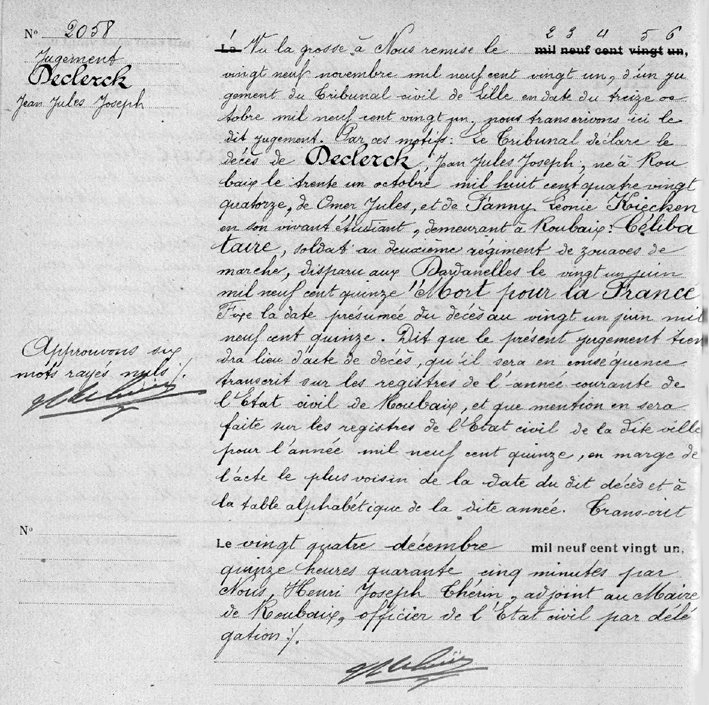 N° 2058
Jugement
Declerck
Jean Jules Joseph
Approuvons six
mots rayés nuls ./.
N°
2 3 4 5 6
Le Vu la grosse à Nous remise le mil neuf cent vingt un,
vingt neuf novembre mil neuf cent vingt un, d'un ju
gement du Tribunal civil de Lille en date du treize oc
tobre mil neuf cent vingt un, nous transcrivons ici le
dit jugement. Par ces motifs : Le Tribunal déclare le
décès de Declerck, Jean Jules Joseph, né à Rou
baix le trente un octobre mil huit cent quatre vingt
quatorze, de Omer Jules, et de Fanny Léonie Kiecken
en son vivant étudiant, demeurant à Roubaix. Céliba
taire, soldat au deuxième régiment de zouaves de
marche, disparu aux Dardanelles le vingt un juin
mil neuf cent quinze "Mort pour la France
Fixe la date présumée du décès au vingt un juin mil
neuf cent quinze. Dit que le présent jugement tien
dra lieu d'acte de décès, qu'il sera en conséquence
transcrit sur les registres de l'année courante de
l'Etat civil de Roubaix, et que mention en sera
faite sur les registres de l'Etat civil de la dite ville
pour l'année mil neuf cent quinze, en marge de
l'acte le plus voisin de la date du dit décès et à
la table alphabétique de la dite année. Transcrit
Le vingt quatre décembre mil neuf cent vingt un,
quinze heures quarante cinq minutes par
Nous, Henri Joseph Thérin, adjoint au Maire
de Roubaix, officier de l'Etat civil par délé
gation ./.